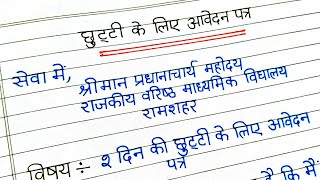 छुट्टी के लिए आवेदन पत्र
सेवा में,
श्रीमान प्रधानाचार्य महोदय
राजकीय वरिष्ठ माध्यमिक विद्यालय
रामशहर
विषय ÷ २ दिन की छुट्टी के लिए आवेदन
पत्र
है कि मैं